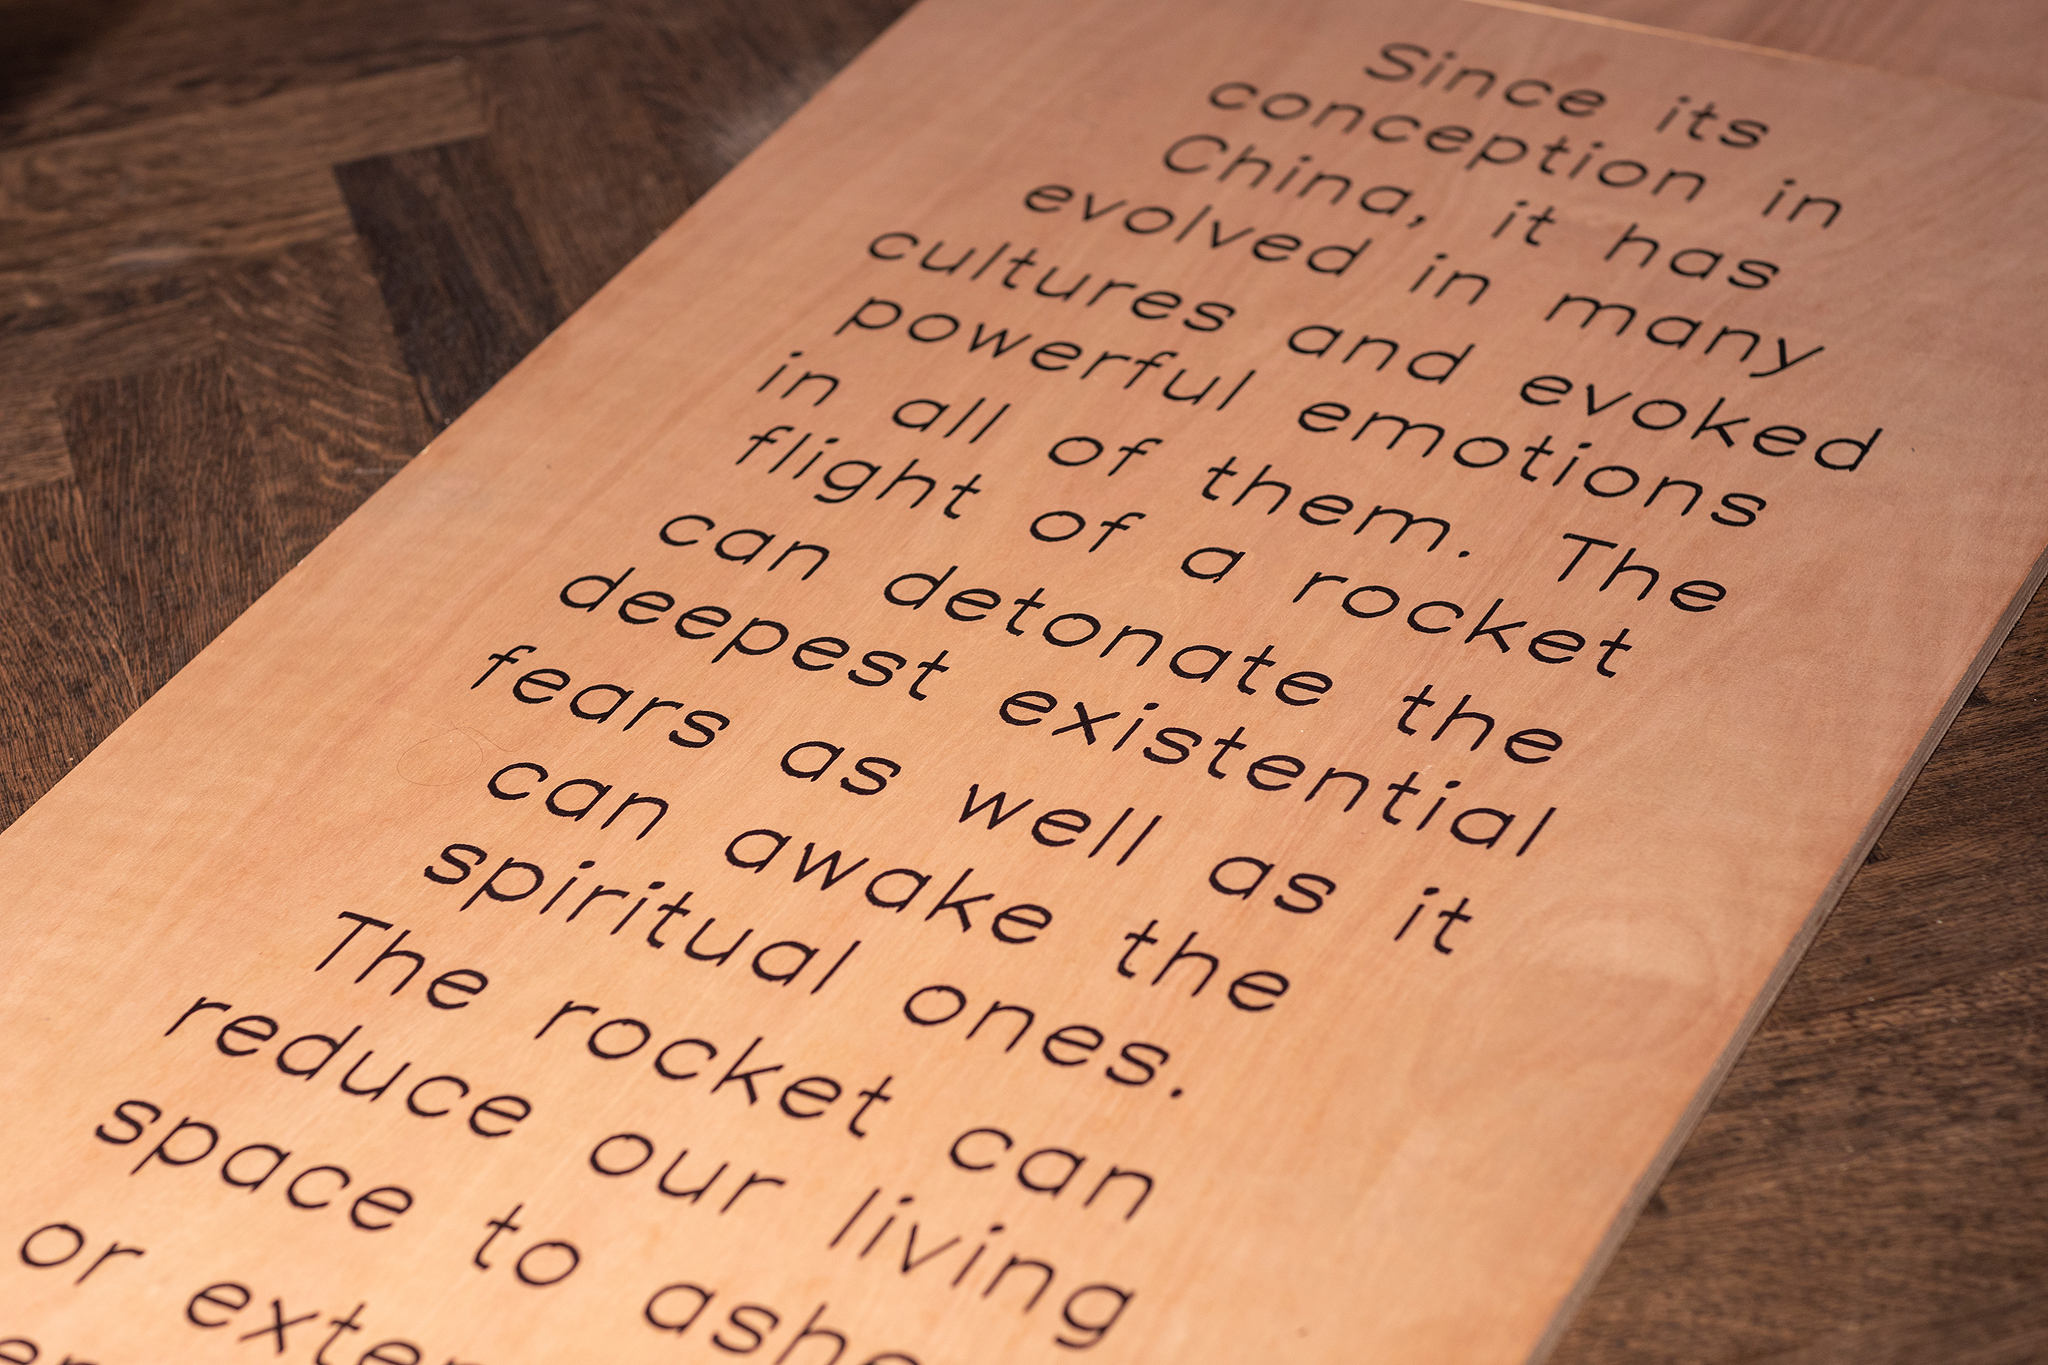 Since its
conception in
China, it has
evolved in many
cultures and evoked
powerful emotions
in all of them. The
flight of a rocket
can detonate the
deepest existential
fears as well as it
can awake the
spiritual ones.
The rocket can
reduce our living
space to
or